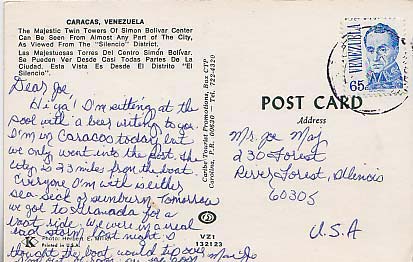 CARACAS, VENEZUELA
The Majestic Twin Towers Of Simon Bolivar Center
Can Be Seen From Almost Any Part Of The City,
As Viewed From The "Silencio" District.
Las Majestuosas Torres Del Centro Simón Bolívar.
Se Pueden Ver Desde Casi Todas Partes De La
Ciudad, Esta Vista Es Desde El Distrito "El
Silencio".
Dear Joe
Hi ya! I'm sitting at the
pool with a beer writing to you.
I'm in Caracas today, but
we only went into the port. The
city is 23 miles from the boat.
Everyone I'm with is either
sea-sick or sunburn. Tomorrow
we go to Granada for a
boat ride. We were in a real
bad storm last night. I
thought the boat would tip over
Photo: Herbert E.
PRINTED IN U.S.A.
VZ1
132123
Caribe Tourist Promotions, Box CTP
Carolina, P.R. 00630 - Tel. 722-4420
VENEZUELA
65
POST CARD
Address
Mr. Joe May
230 Forest
River Forest, Illinois
60305
U.S.A